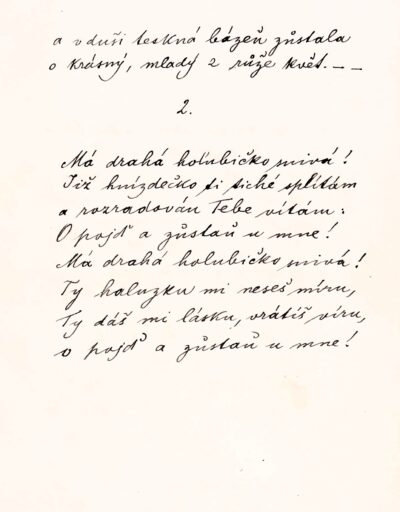 a v duši teskná bázeň zůstala
o krásný, mladý z růže květ. _ _
2.
Má drahá holubičko snivá!
Již hnízdečko ti tiché splítám
a rozradován Tebe vítám:
O pojď a zůstaň u mne!
Má drahá holubičko snivá!
Ty haluzku mi neseš míru,
Ty dáš mi lásku, vrátíš víru,
o pojď a zůstaň u mne!